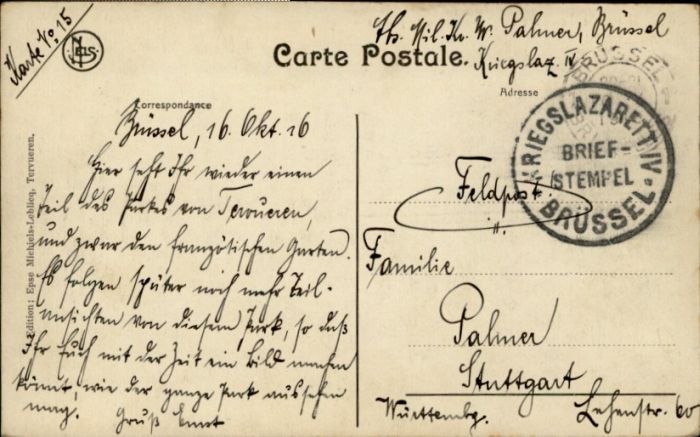 Karte No. 15
Abs. Mil. Kr. W. Palmer, Brüssel
Kriegslaz. IV
Carte Postale.
Correspondance
Adresse
Brüssel, 16. Okt. 16
Hier seht Ihr wieder einen
Teil des Parkes von Tervueren,
und zwar den französischen Garten.
Es folgen später noch mehr Teil-
ansichten von diesem Park, so daß
Ihr Euch mit der Zeit ein Bild machen
könnt, wie der ganze Park aussehen
mag.
Gruß Ernst
BRÜSSEL
KRIEGSLAZARETT IV.
BRIEF-
STEMPEL
BRÜSSEL
Feldpost.
Familie
Palmer
Stuttgart
Württembg.
Lehenstr. 60
Edition: Epse Michiels-Loblicq, Tervueren.